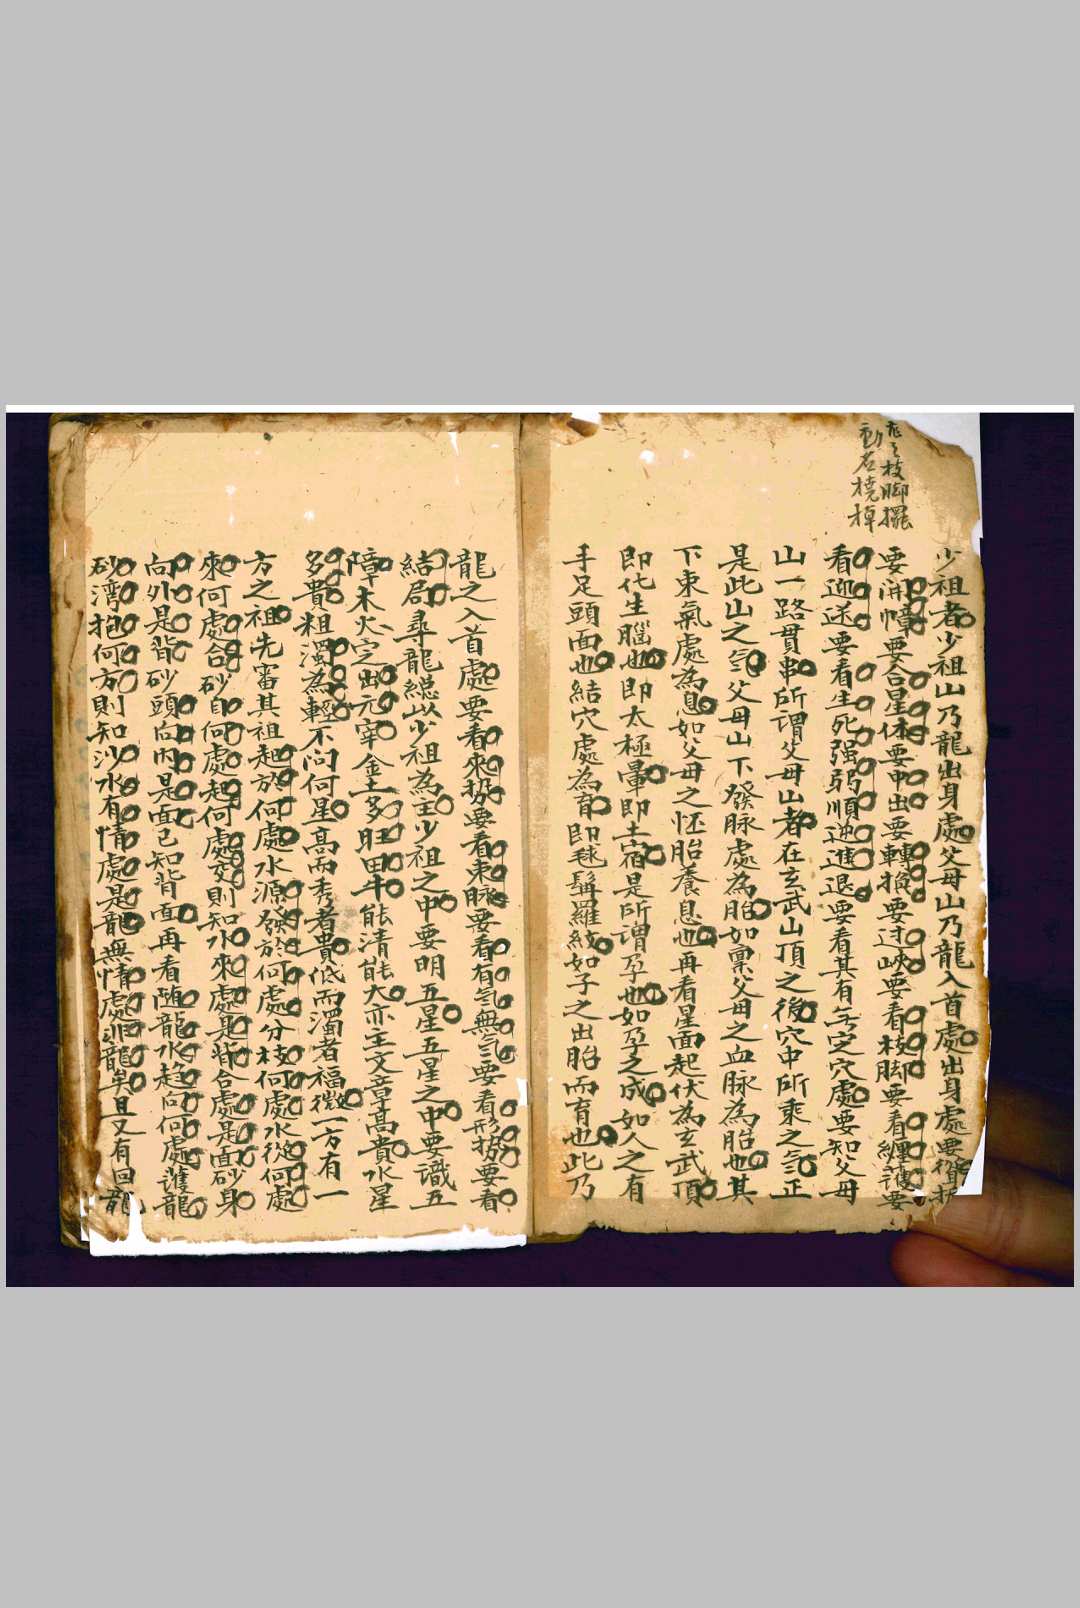 枝脚擺
動名橈棹
少祖者少祖山乃龍出身處父母山乃龍入首處出身處要
要開帳要合星体要中出要轉換要过峽要看枝脚要看纏護要
看迎送要看生死强弱順逆進退要看其有无空穴處要知父母
山一路貫串所謂父母山者在玄武山頂之後穴中所乘之氣正
是此山之氣父母山下發脉處為胎如稟父母之血脉為胎也其
下束氣處為息如父母之怀胎養息也再看星面起伏為玄武頂
即化生腦也即太極暈即土宿是所謂孕也如孕之成如人之有
手足頭面也結穴處為育即毬髯羅紋如子之出胎而育也此乃
龍之入首處要看來势要看束脉要看有氣無氣要看形势要看
結局尋龍總以少祖為主少祖之中要明五星五星之中要識五
障木火定出元宰金土多旺田牛能清能大亦主文章高貴水星
多貴粗濁為輕不问何星高而秀者貴低而濁者福微一方有一
方之祖先審其祖起於何處水源發於何處分枝何處水從何處
來何處合砂自何處起何處交則知水來處是背合處是面砂身
向外是背砂頭向内是面已知背面再看随龍水趋向何處護龍
砂湾抱何方則知沙水有情處是龍無情處非龍單且又有回龍